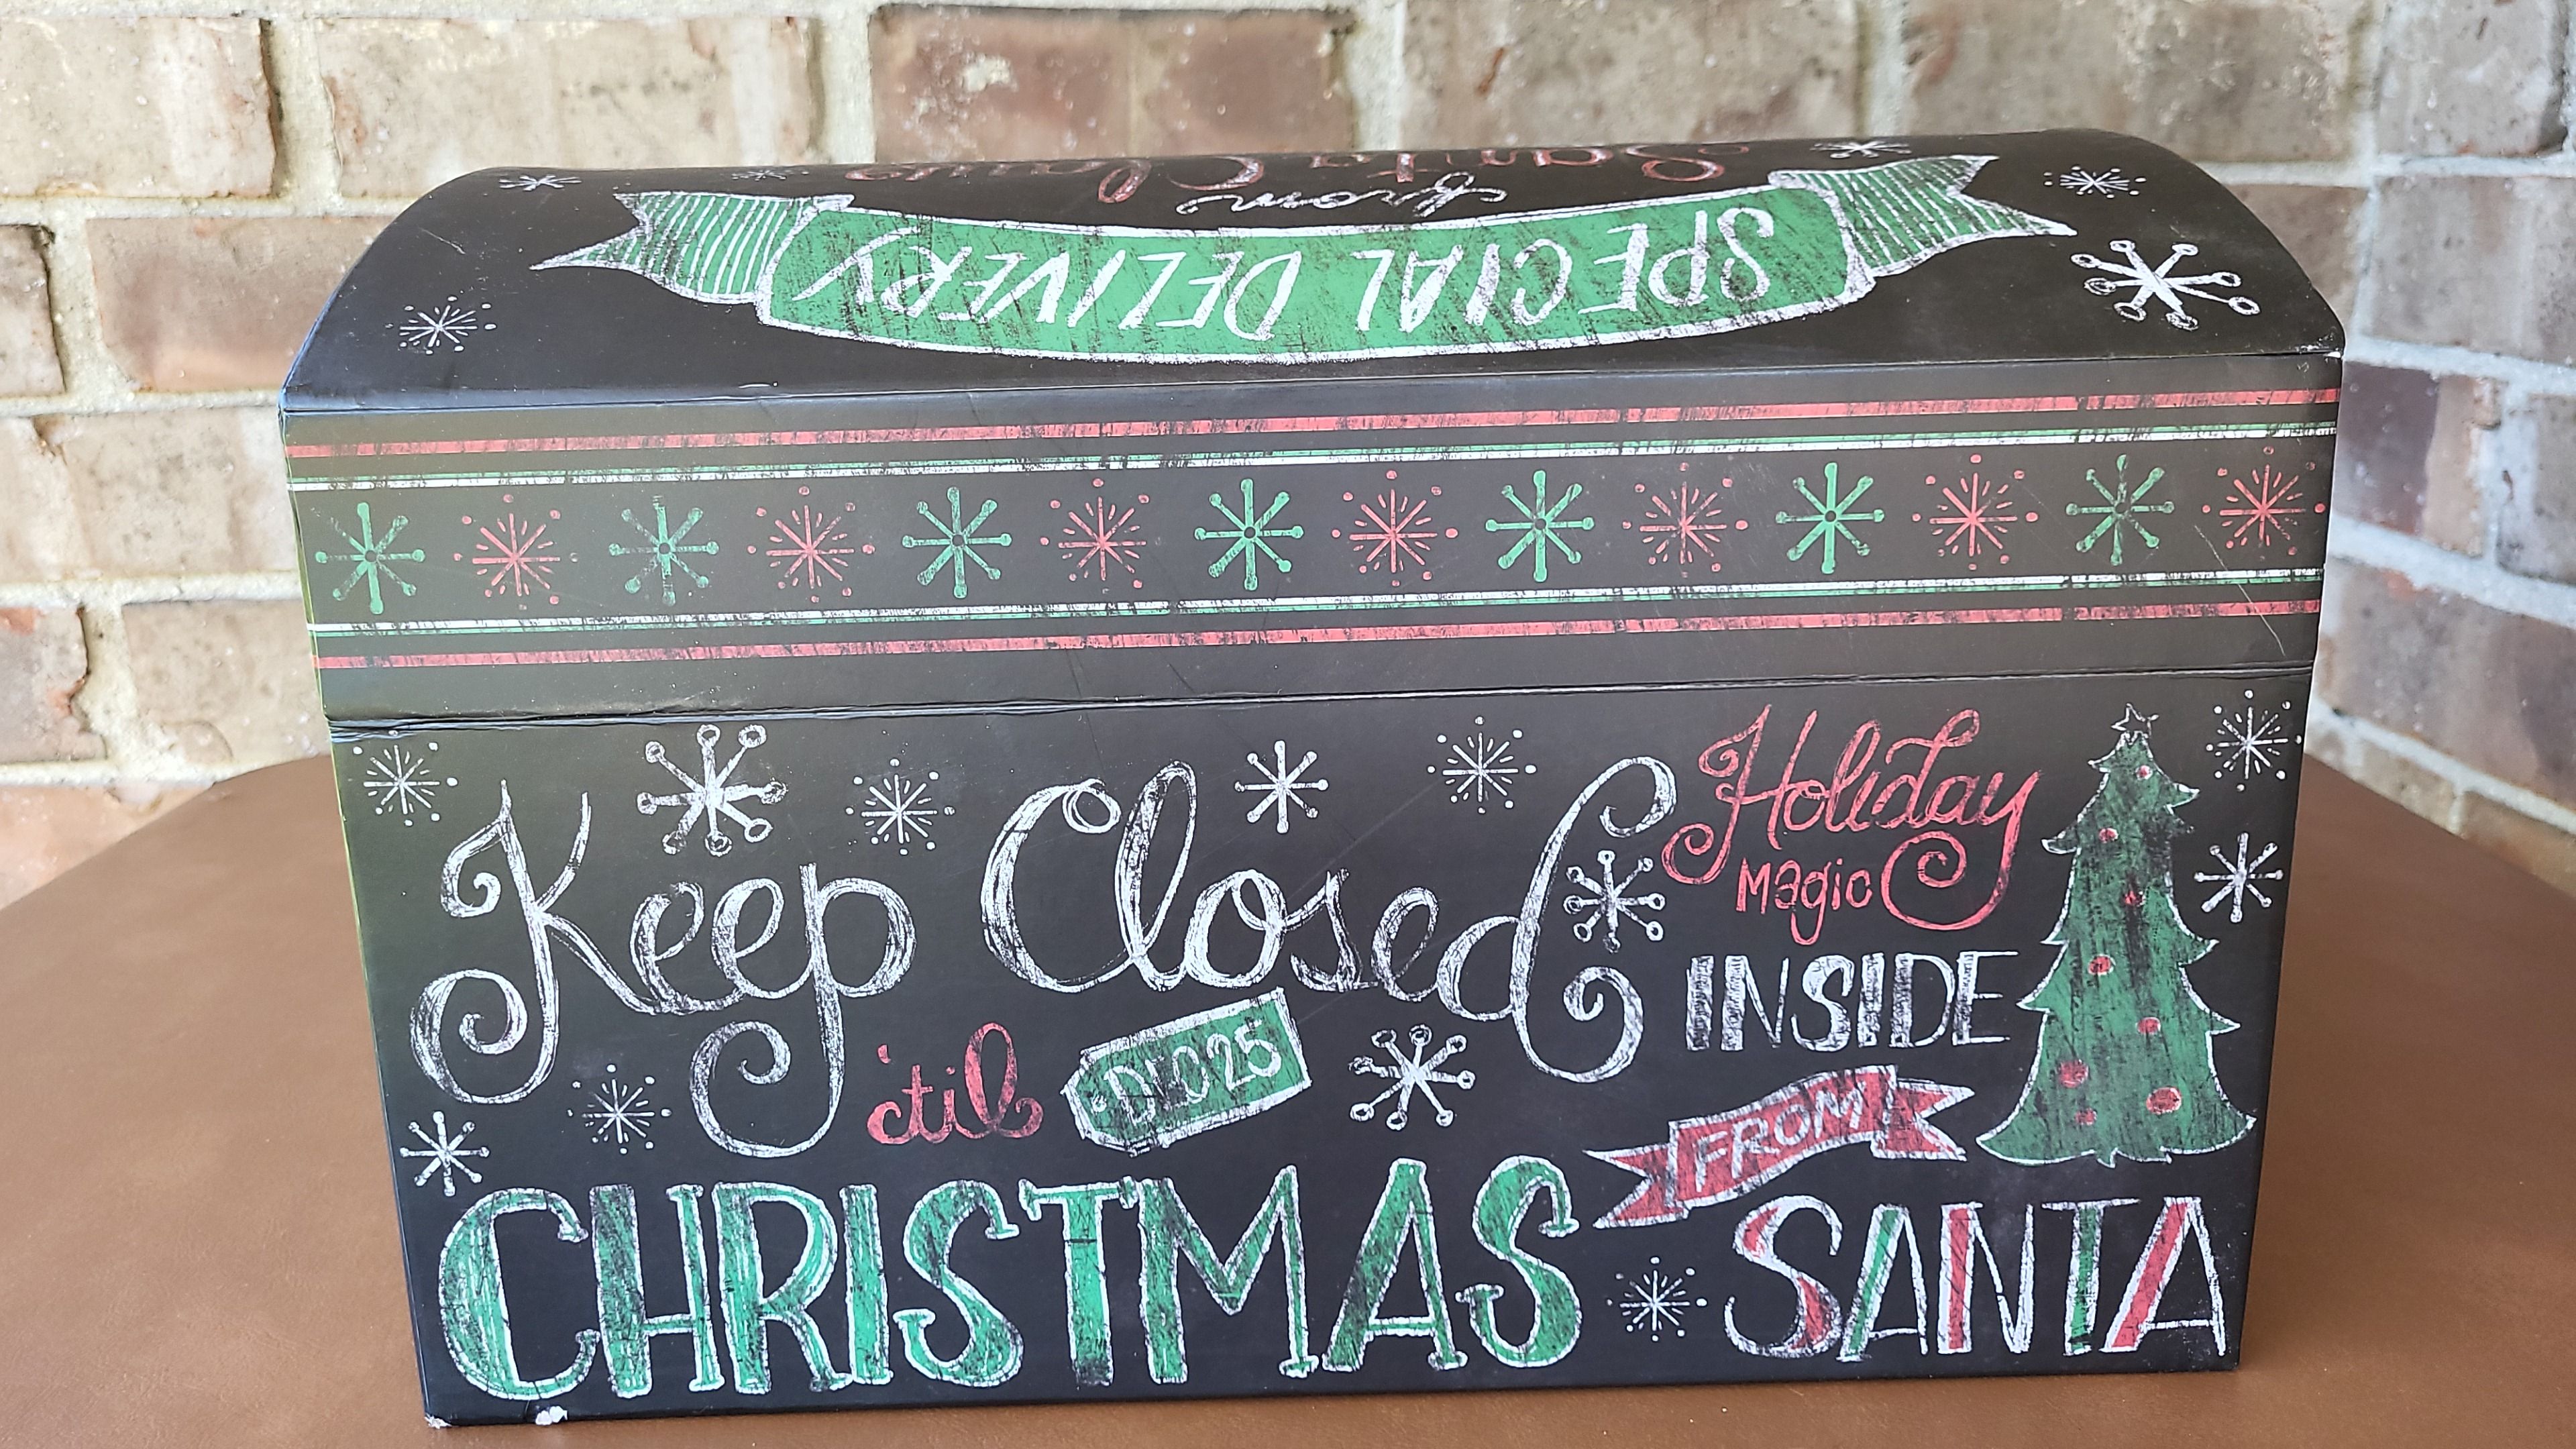 SPECIAL DELIVERY
from
Santa Claus
Keep Closed
'til DEC 25
CHRISTMAS
Holiday
Magic
INSIDE
FROM
SANTA